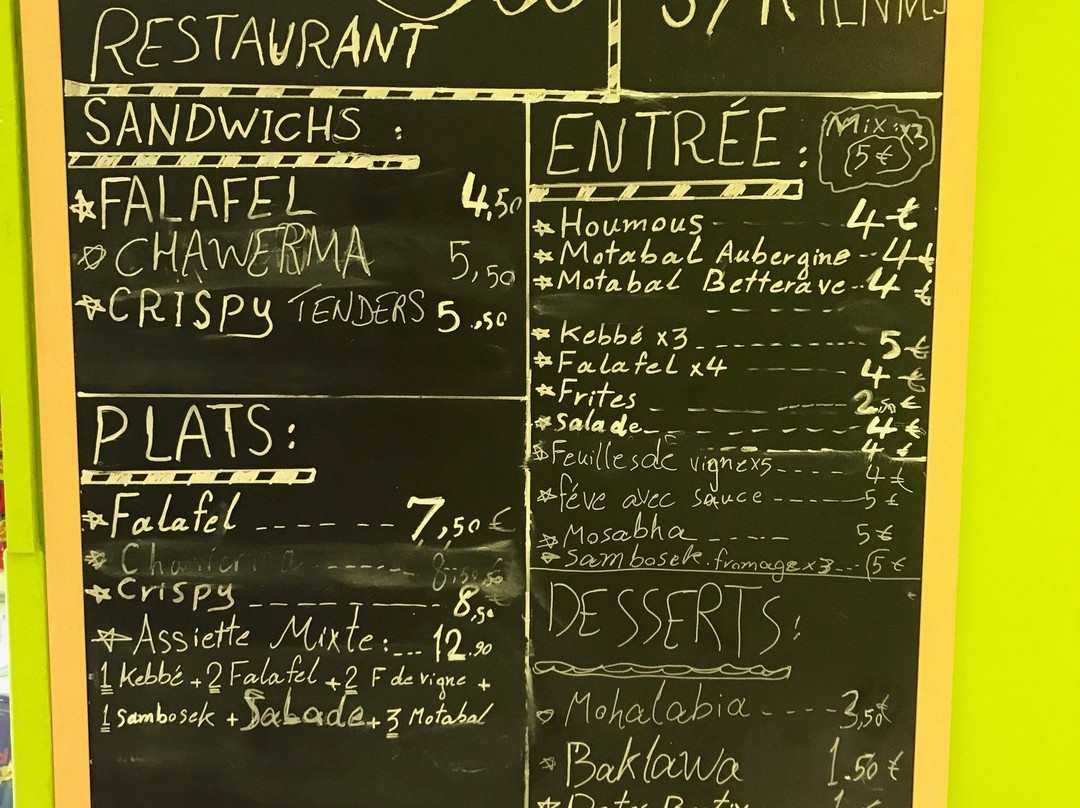 RESTAURANT
SANDWICHS :
FALAFEL 4,50
CHAWERMA 5,50
CRISPY TENDERS 5.50
PLATS:
Falafel ---- -- 7,50 €
8,50 €
Crispy -------- 8,50
Assiette Mixte:... 12.90
1 Kebbé + 2 Falafel + 2 F de vigne +
1 Sambosek + Salade + 3 Motabal
ENTRÉE:
Mix: x3
5€
Houmous ------ 4 €
Motabal Aubergine -- 4 €
Motabal Betterave -- 4 €
Kebbé x3 --------- 5 €
Falafel x4 ------ 4 €
Frites ------- 2,50 €
Salade -------- 4 €
4 €
Feuilles de vigne x5 ----- 4 €
féve avec sauce ------ 5 €
Mosabha ----- 5 €
Sambosek. fromage x3 --- 5 €
DESSERTS:
Mohalabia ---- 3,50€
Baklawa 1.50 €